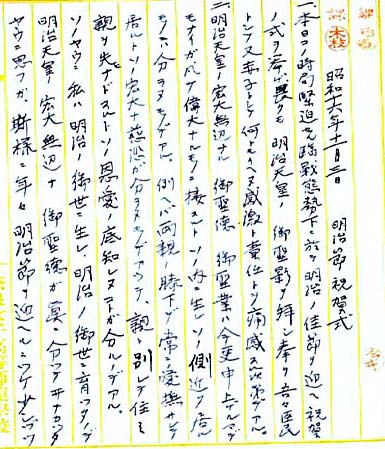 昭和十六年十一月三日 明治節祝賀式
一、本日コノ時局緊迫セル臨戦態勢下ニ於テ明治ノ佳節ヲ迎ヘ祝賀
ノ式ヲ挙ゲ畏クモ明治天皇ノ御聖影ヲ拝シ奉リ吾々臣
トシテ又赤子トシテ何トモイヘヌ感激ト責任トヲ痛感スル次第デアル。
二、明治天皇ノ宏大無辺ナル御聖徳御聖業ハ今更申上ルマデ
モナイガ凡テ偉大ナルモノニ接スルトソノ内ニ生レソノ側近ク居ル
モノハ分ラヌモノデアル。例ヘバ両親ノ膝下デ常ニ愛撫サレテ
居ルトソノ宏大ナ慈悲ガ分ラヌモノデアルガ、親ト別レテ住ミ
親ヲ失ナドスルトソノ恩愛ノ底知レヌコトガ分ルノデアル。
ソノヤウニ私ハ明治ノ御世ニ生レ、明治ノ御世ニ育ツタノデ
明治天皇ノ宏大無辺ナ御聖徳ガ真ニ分ツテ居ナカツタ
ヤウニ思フガ、斯様ニ年々明治節ヲ迎ヘルニツケ